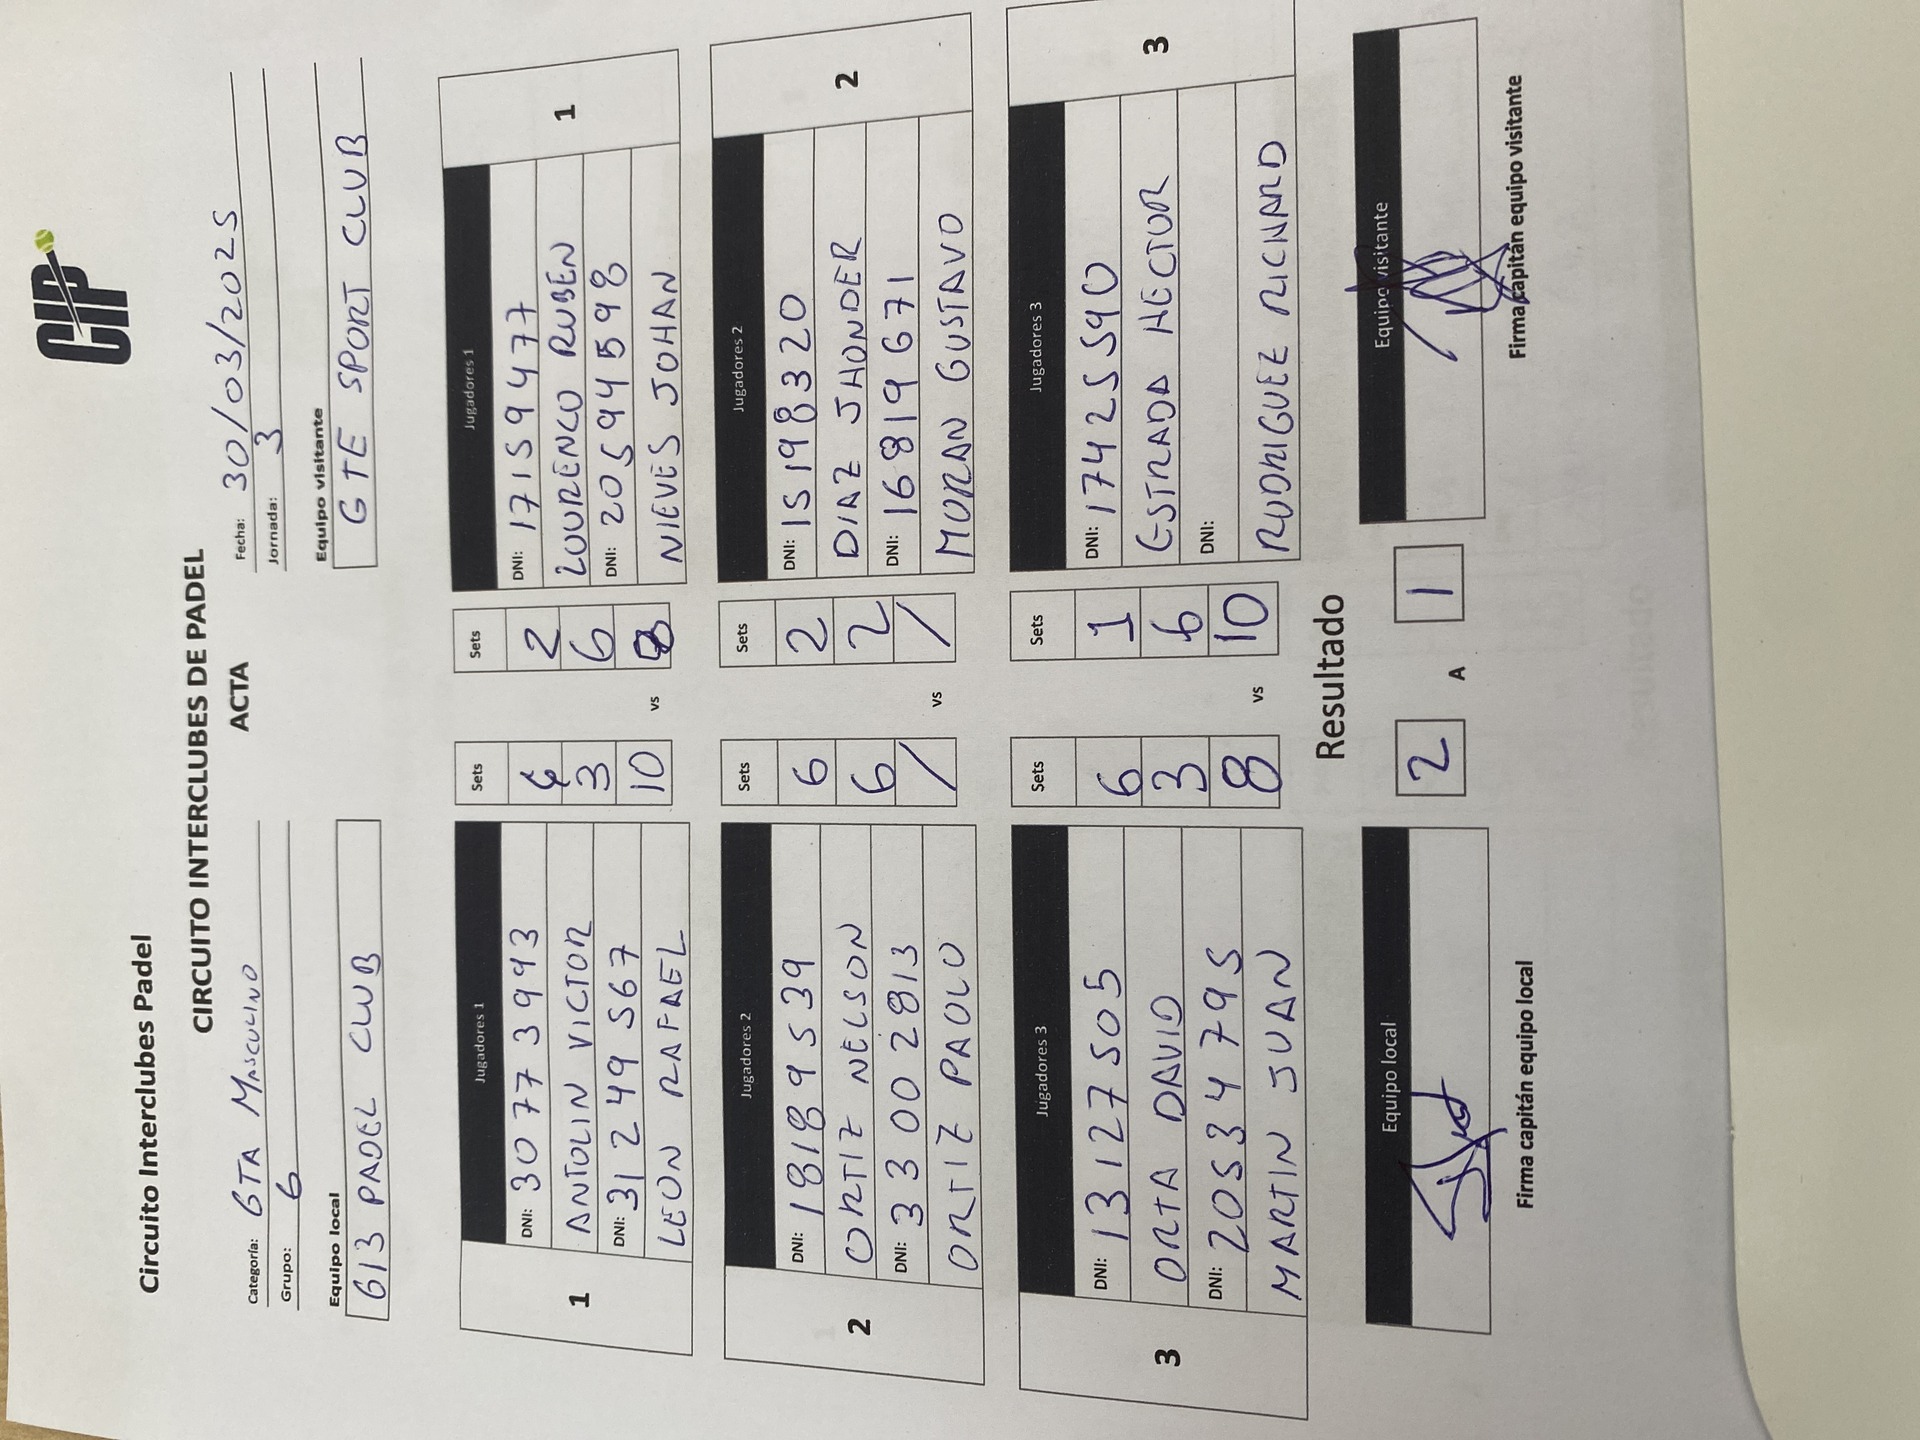 CIP
Circuito Interclubes Padel
CIRCUITO INTERCLUBES DE PADEL
ACTA
Categoría: 6TA MASCULINO
Fecha: 30/03/2025
Grupo: 6
Jornada: 3
Equipo local
Equipo visitante
613 PADEL CLUB
GTE SPORT CLUB
Jugadores 1 Sets Sets Jugadores 1
1 DNI: 30773993 6 2 DNI: 17159477 1
ANTOLIN VICTOR 3 6 LOURENCO RUBEN
DNI: 31249567 10 vs 8 DNI: 20594598
LEON RAFAEL NIEVES JOHAN
Jugadores 2 Sets Sets Jugadores 2
2 DNI: 18189539 6 2 DNI: 15198320 2
ORTIZ NELSON 6 2 DIAZ JHONDER
DNI: 33002813 / vs / DNI: 16819671
ORTIZ PAOLO MORAN GUSTAVO
Jugadores 3 Sets Sets Jugadores 3
3 DNI: 13127505 6 1 DNI: 17425590 3
ORTA DAVID 3 6 ESTRADA HECTOR
DNI: 20534795 8 vs 10 DNI:
MARTIN JUAN RODRIGUEZ RICHARD
Resultado
Equipo local 2 A 1 Equipo visitante
Firma capitán equipo local
Firma capitán equipo visitante